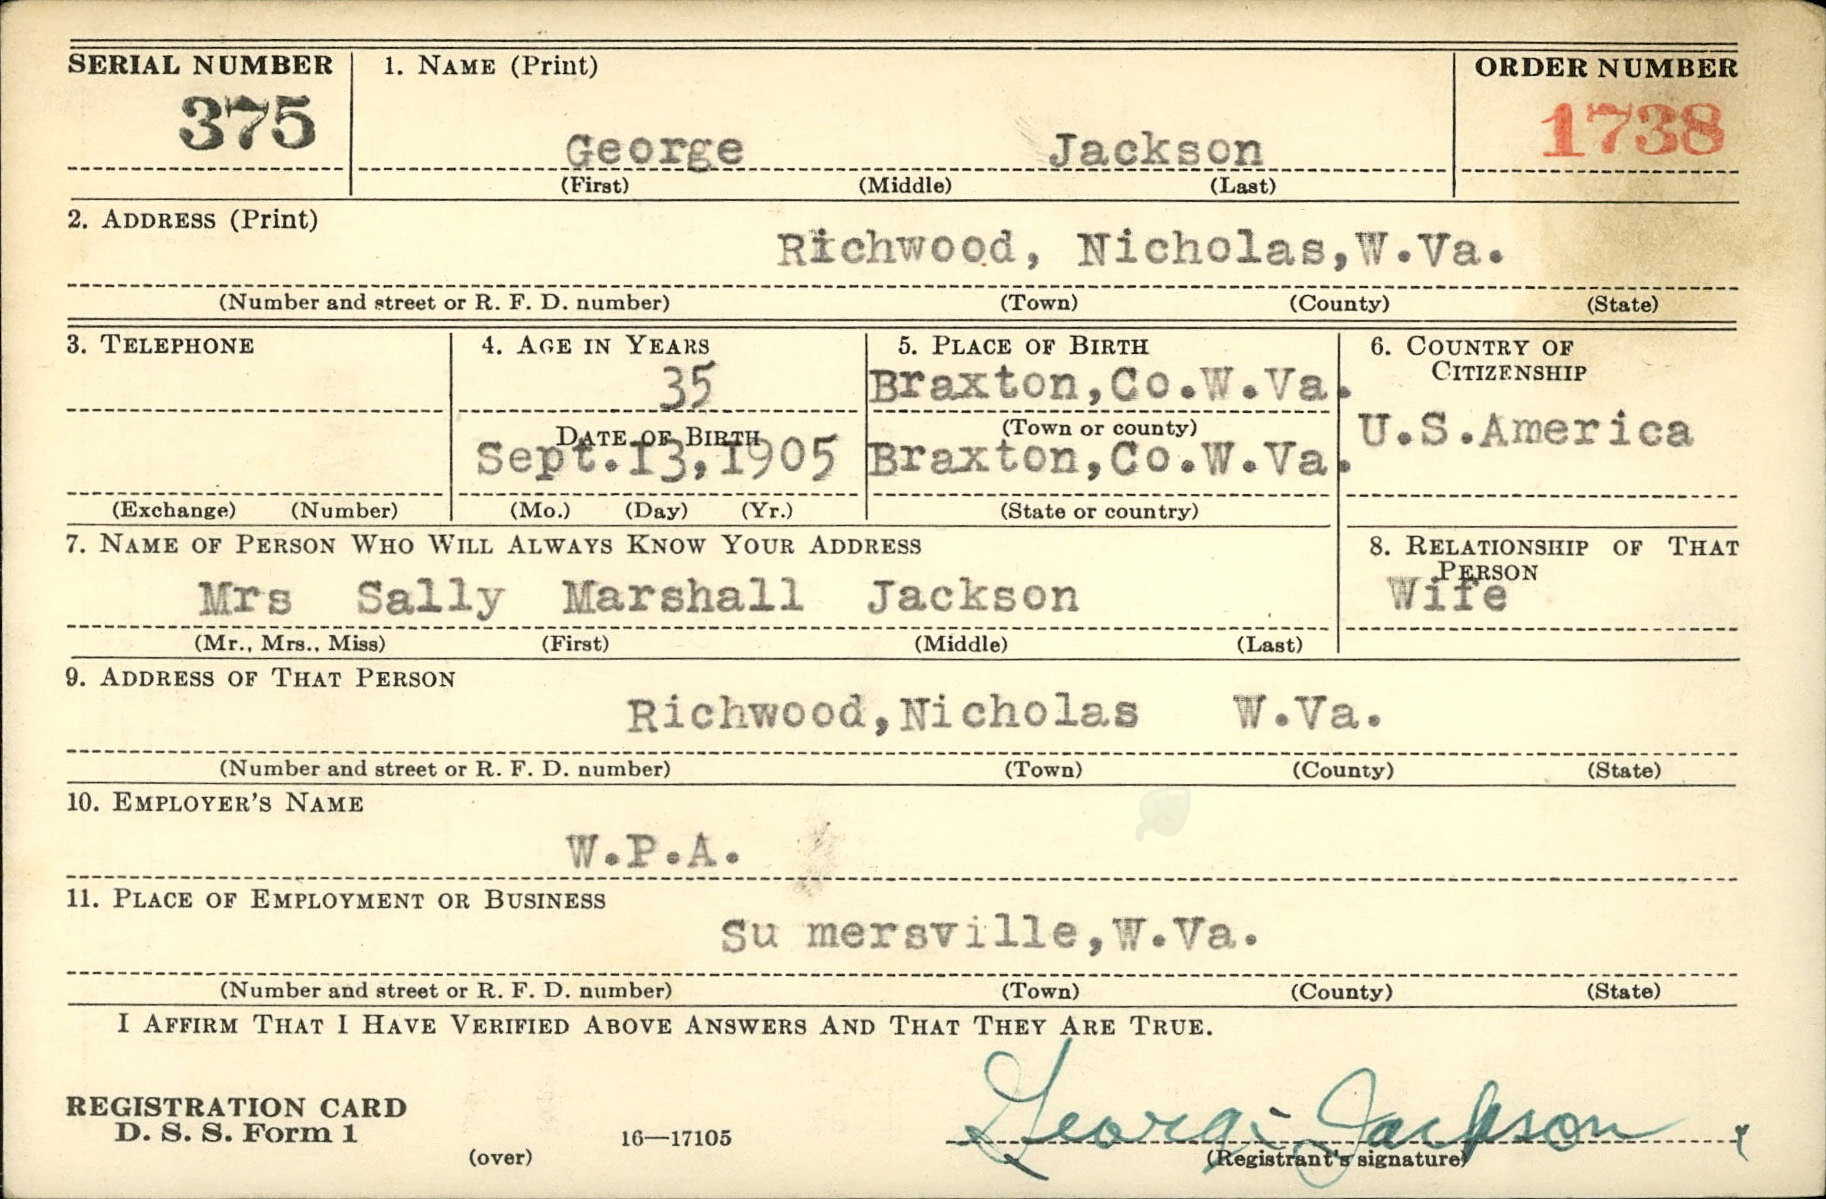 SERIAL NUMBER 1. NAME (Print) ORDER NUMBER
375 George Jackson 1738
(First) (Middle) (Last)
2. ADDRESS (Print)
Richwood, Nicholas,W.Va.
(Number and street or R. F. D. number) (Town) (County) (State)
3. TELEPHONE 4. AGE IN YEARS 5. PLACE OF BIRTH 6. COUNTRY OF CITIZENSHIP
35 Braxton,Co.W.Va.
DATE OF BIRTH (Town or county) U.S.America
Sept.I3,I905 Braxton,Co.W.Va.
(Exchange) (Number) (Mo.) (Day) (Yr.) (State or country)
7. NAME OF PERSON WHO WILL ALWAYS KNOW YOUR ADDRESS 8. RELATIONSHIP OF THAT PERSON
Mrs Sally Marshall Jackson Wife
(Mr., Mrs., Miss) (First) (Middle) (Last)
9. ADDRESS OF THAT PERSON
Richwood,Nicholas W.Va.
(Number and street or R. F. D. number) (Town) (County) (State)
10. EMPLOYER'S NAME
W.P.A.
11. PLACE OF EMPLOYMENT OR BUSINESS
Su mersville,W.Va.
(Number and street or R. F. D. number) (Town) (County) (State)
I AFFIRM THAT I HAVE VERIFIED ABOVE ANSWERS AND THAT THEY ARE TRUE.
REGISTRATION CARD
D. S. S. Form 1 16—17105 George Jackson
(over) (Registrant's signature)